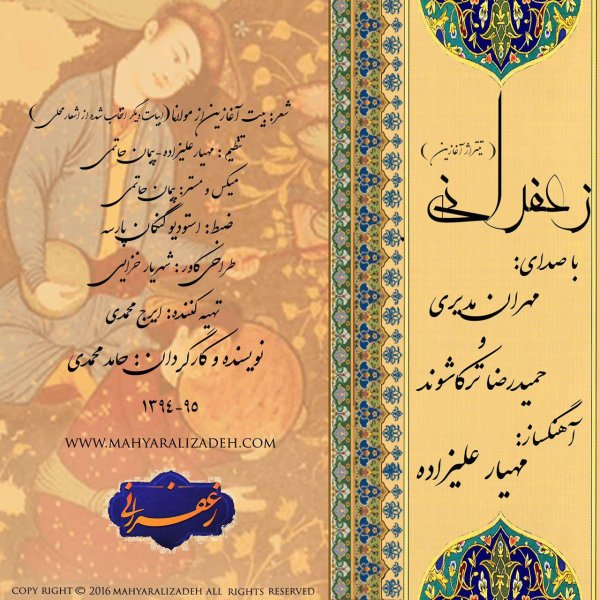 زعفرانی
( تیتراژ آغازین )
با صدای:
مهران مدیری
و
حمیدرضا ترکاشوند
آهنگساز:
مهیار علیزاده
شعر: بیت آغازین از مولانا (ابیات دیگر انتخاب شده از اشعار محلی)
تنظیم : مهیار علیزاده - پیمان حاتمی
میکس و مستر: پیمان حاتمی
ضبط: استودیو گنگان پارسه
طراحی کاور : شهریار خزایی
تهیه کننده: ایرج محمدی
نویسنده و کارگردان : حامد محمدی
۱۳۹۴-۹۵
WWW.MAHYARALIZADEH.COM
زعفرانی
COPY RIGHT © 2016 MAHYARALIZADEH ALL RIGHTS RESERVED